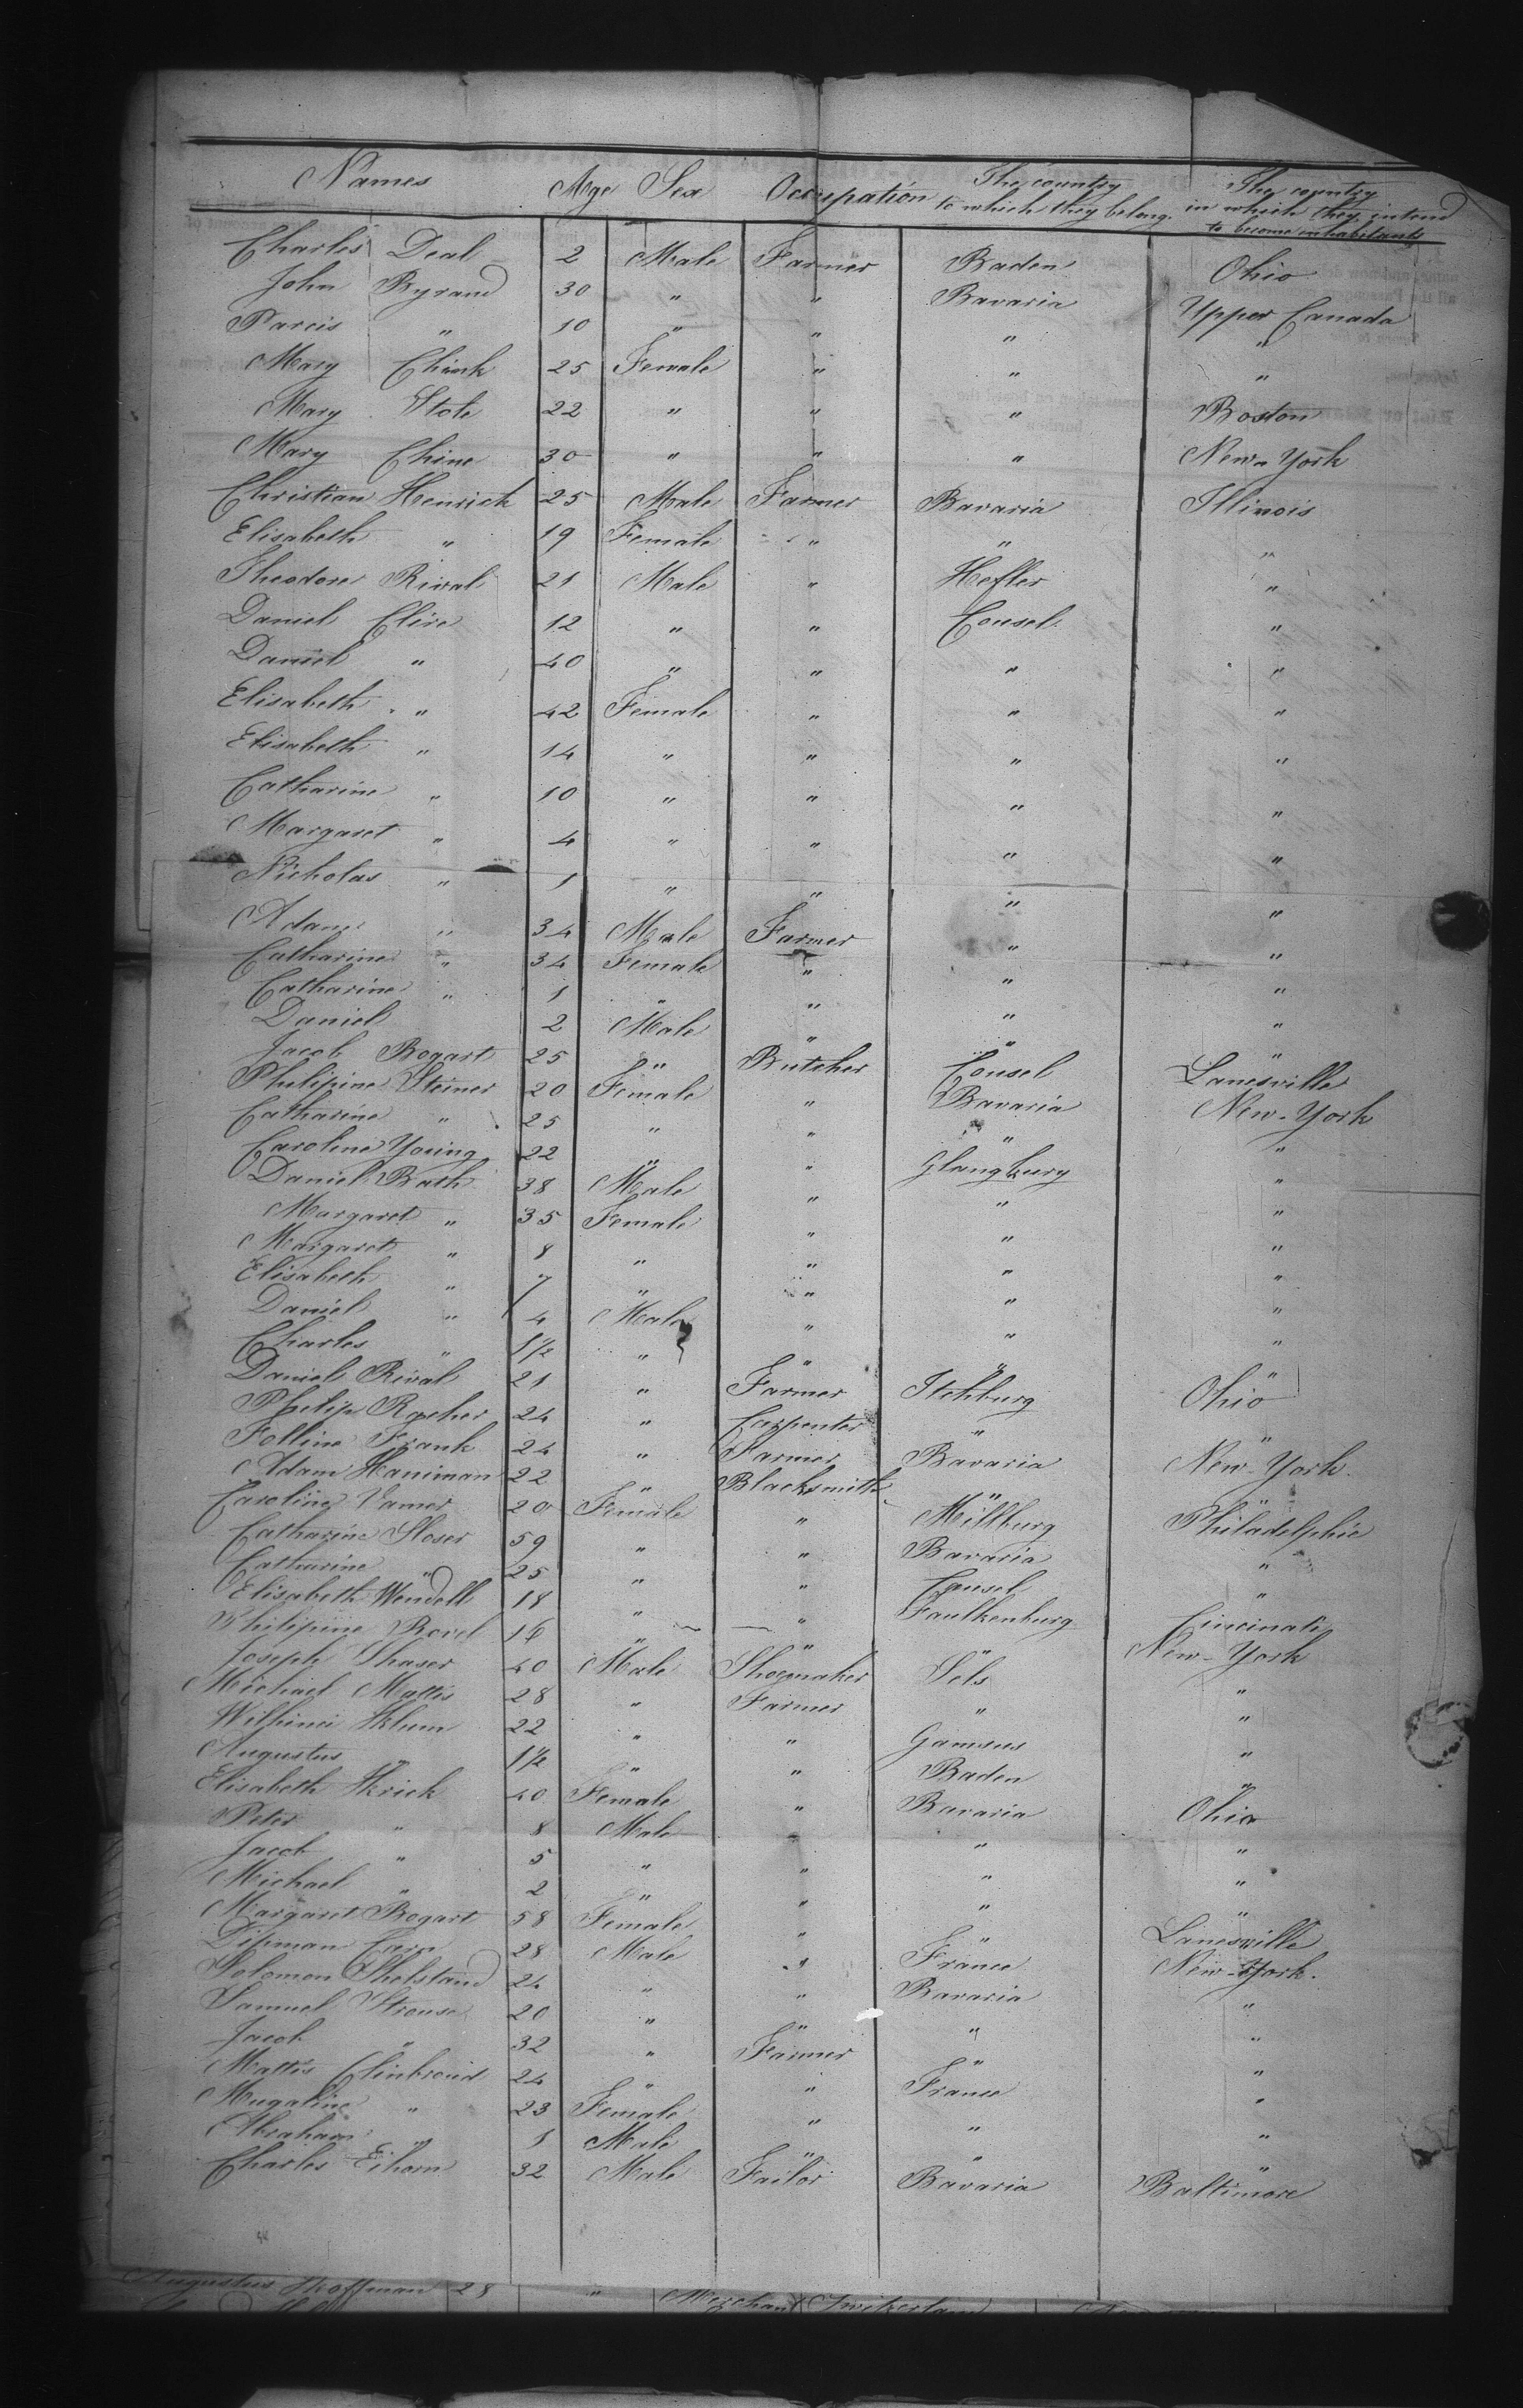 Names Age Sex Occupation The country to which they belong. The country in which they intend to become inhabitants
Charles Deal 2 Male Farmer Baden Ohio
John Byrand 30 " " Bavaria Upper Canada
Parcis " 10 " " " "
Mary Chink 25 Female " " "
Mary Stole 22 " " " Boston
Mary Chine 30 " " " New-York
Christian Henrich 25 Male Farmer Bavaria Illinois
Elisabeth " 19 Female " " "
Theodore Rival 21 Male " Hefler "
Daniel Clire 12 " " Cousel "
Daniel " 40 " " " "
Elisabeth " 42 Female " " "
Elisabeth " 14 " " " "
Catharine " 10 " " " "
Margaret " 4 " " " "
Nicholas " 1 " " " "
Adam " 34 Male Farmer " "
Catharine " 34 Female " " "
Catharine " 1 " " " "
Daniel 2 Male " " "
Jacob Bogart 25 " Butcher Cousel Lanesville
Philipine Steiner 20 Female " Bavaria New-York
Catharine " 25 " " " "
Caroline Young 22 " " Glangburg "
Daniel Bath 38 Male " " "
Margaret " 35 Female " " "
Margaret " 8 " " " "
Elisabeth " 7 " " " "
Daniel " 4 Male " " "
Charles " 1 1/2 " " " "
Daniel Rival 21 " Farmer Itchburg Ohio
Philip Rocher 24 " Carpenter " "
Folline Frank 24 " Farmer Bavaria New-York
Adam Haniman 22 " Blacksmith " "
Caroline Vamer 20 Female " Millburg Philadelphia
Catharine Sloser 59 " " Bavaria "
Catharine " 25 " " Cousel "
Elisabeth Wendell 18 " " Faulkenburg Cincinati
Philipine Rovel 16 " " New-York
Joseph Shaser 40 Male Shoemaker Sels "
Michael Mattis 28 " Farmer " "
Sklum 22 " " Gamsus "
Augustus " 1 1/2 " " Baden "
Elisabeth Skrick 40 Female " Bavaria Ohio
Peter " 8 Male " " "
Jacob " 5 " " " "
Michael " 2 " " " "
Margaret Bogart 58 Female " " Lanesville
Dipman Carn 28 Male " France New-York.
Solomon Shelstand 24 " " Bavaria "
Samuel Strouse 20 " " " "
Jacob " 32 " Farmer " "
Mattis Clinbroud 24 " " France "
Mugaline " 23 Female " " "
Abraham " 1 Male " " "
Charles Eihorn 32 Male Tailor Bavaria Baltimore
Augustus Hoffman 28 " Merchant Switzerland